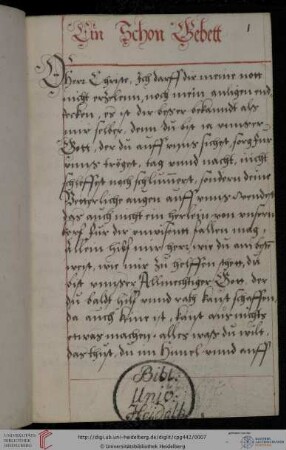 Ein Schon Gebett
1
O Herr Christe, Ich darff dir meine nott
nicht erzelenn, noch mein anligen end
decken, es ist dir besser bekandt als
mir selber, denn du bist ia unnser
Gott, der du auff unns sichst, sorg fur
unns tregst, tag unnd nacht, nicht
schleffest noch schlummerst, sondern deine
Vetterliche augen auff unns wendest
das auch nicht ein herlein von unsern
fur dir unwissent fallen mag
Allein hilf mir herr wie du am best
weist, wie mir zu helffen ist, du
bist unnser Allmechtiger Gott, der
du baldt hilf unnd rath kanst schaffen
da auch keine ist, kanst aus nichts
etwas machen, alles was du wilt
das thust, du im Himel unnd auff
Bibl.
Univ.
Heidelb.
UNIVERSITÄTS-
BIBLIOTHEK
HEIDELBERG
http://digi.ub.uni-heidelberg.de/diglit/cpg442/0007
© Universitätsbibliothek Heidelberg